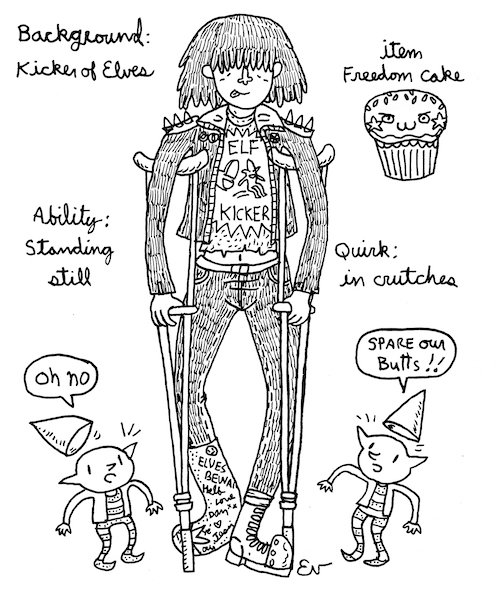 Background:
Kicker of Elves
item
Freedom Cake
ELF
KICKER
Ability:
Standing
still
Quirk:
in crutches
Oh no
SPARE our
Butts!!
ELVES
BEWA
Love
Dan
EV